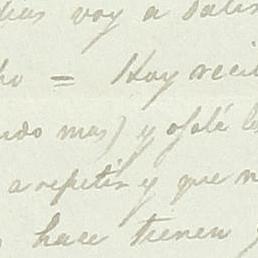 dias voy a dalis
ho = Hoy recib
ndo mas) y ojalé le
a repetir y que n
hace tienen